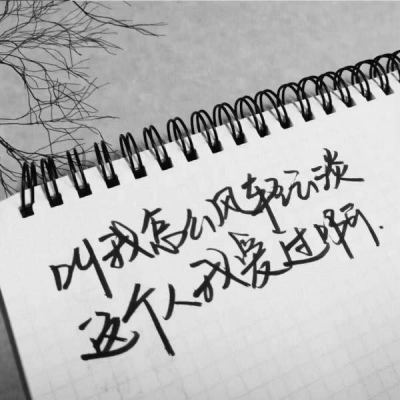 叫我怎么风轻云淡
这个人我爱过啊.